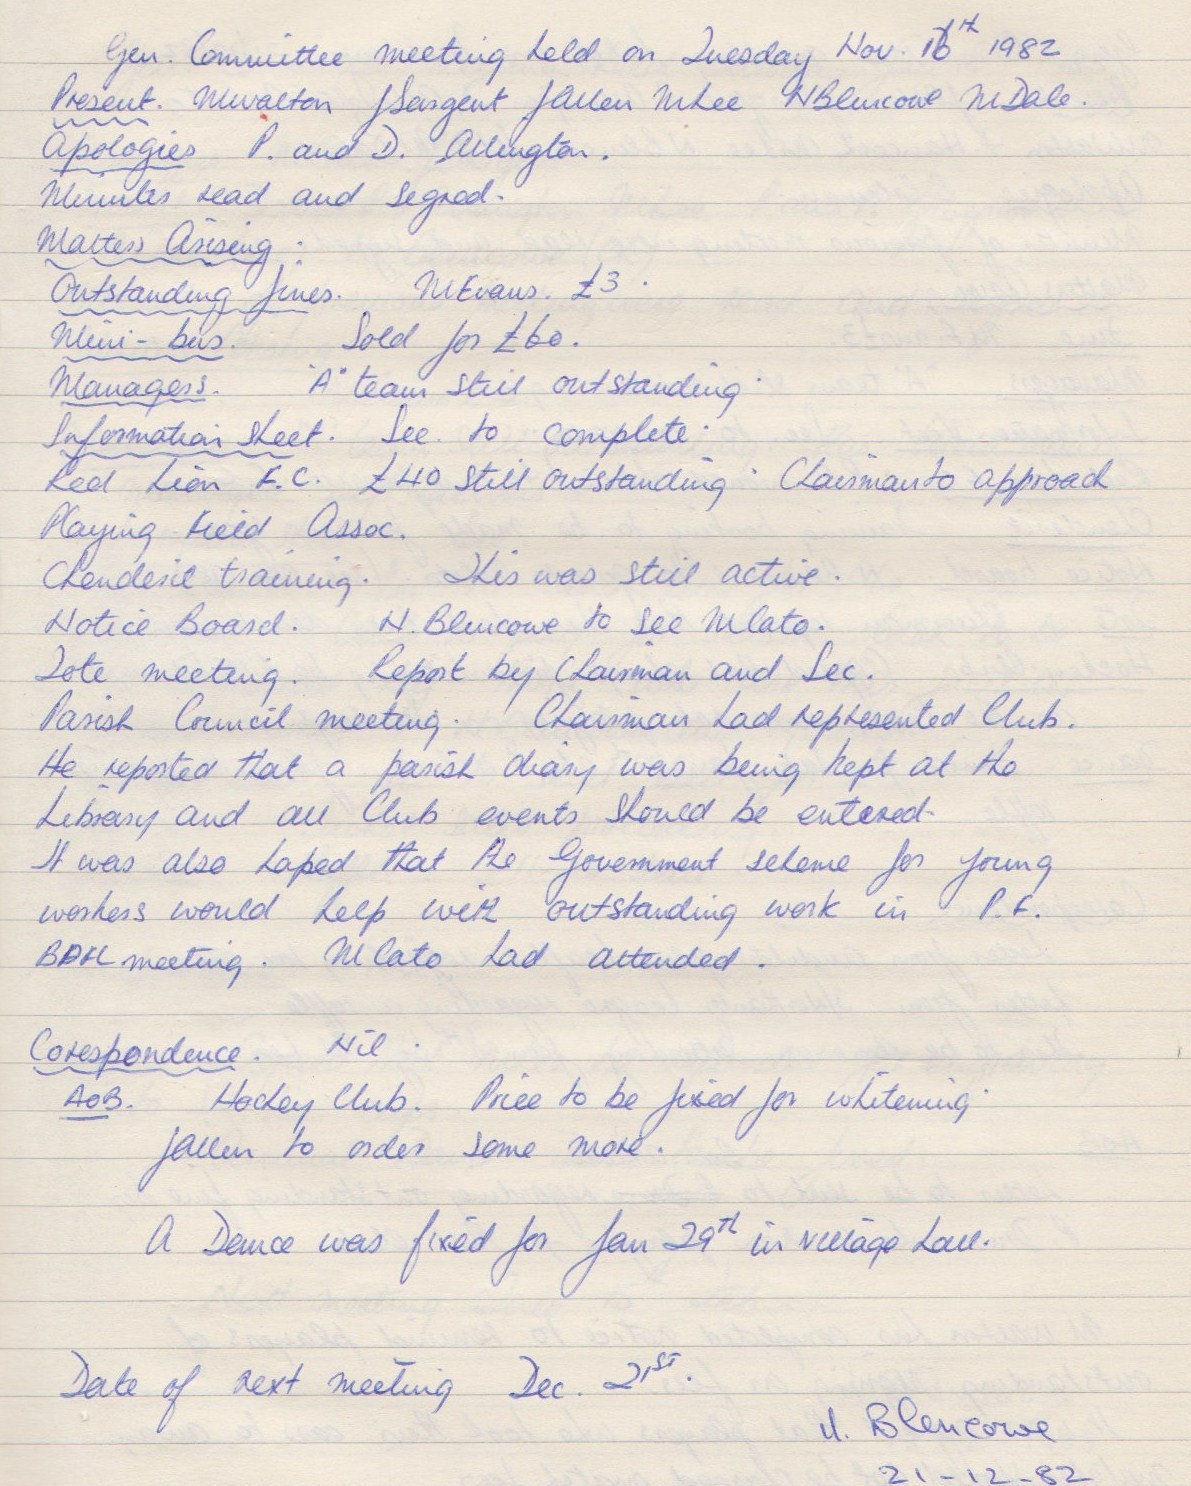 Gen. Committee meeting held on Tuesday Nov. 16th 1982
Present. M Walton J Sargent J Allen M Lee N Blencowe M Dale.
Apologies P. and D. Allington.
Minutes read and signed.
Matters Arising.
Outstanding fines. M Evans. £3.
Mini-bus. Sold for £60.
Managers. "A" team still outstanding.
Information Sheet. Sec. to complete.
Red Lion F.C. £40 still outstanding. Chairman to approach
Playing Field Assoc.
training. This was still active.
Notice Board. N. Blencowe to see M Cato.
Tote meeting. Report by Chairman and Sec.
Parish Council meeting. Chairman had represented Club.
He reported that a parish diary was being kept at the
Library and all Club events should be entered.
It was also hoped that the Government scheme for young
workers would help with outstanding work in P.F.
meeting. M Cato had attended.
Corespondence. Nil.
AOB. Hockey Club. Price to be fixed for whitening.
J Allen to order some more.
A Dance was fixed for Jan 29th in village hall.
Date of next meeting Dec. 21st.
N. Blencowe
21-12-82